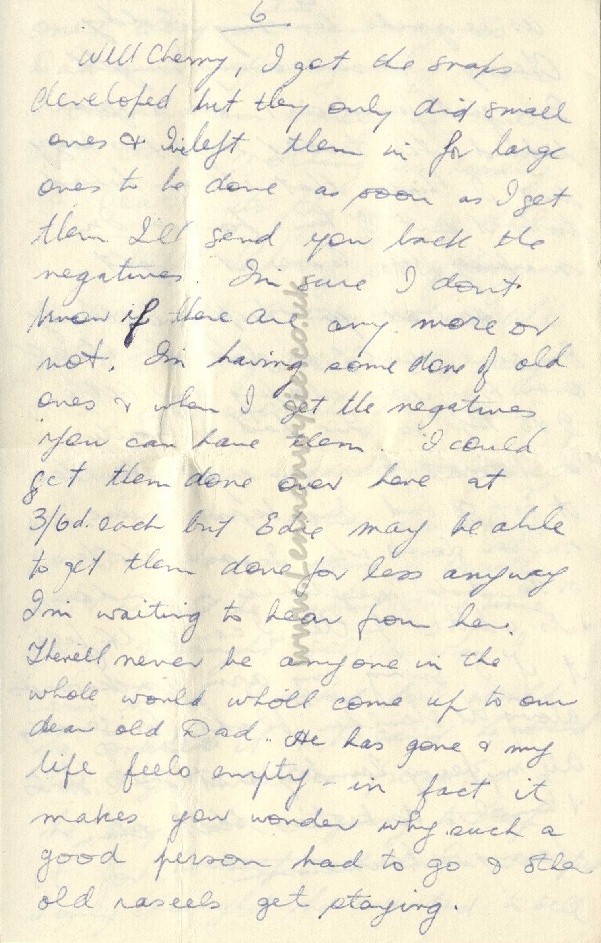 6
Well Cherry, I got the snaps
developed but they only did small
ones & I've left them in for large
ones to be done as soon as I get
them I'll send you back the
negatives. I'm sure I don't
know if there are any more or
not. I'm having some done of old
ones & when I get the negatives
you can have them. I could
get them done over here at
3/6d. each but Edie may be able
to get them done for less anyway
I'm waiting to hear from her.
There'll never be anyone in the
whole world who'll come up to our
dear old Dad.. He has gone & my
life feels empty - in fact it
makes you wonder why such a
good person had to go & other
old rascels get staying.
www.Lennonmyfiles.co.uk